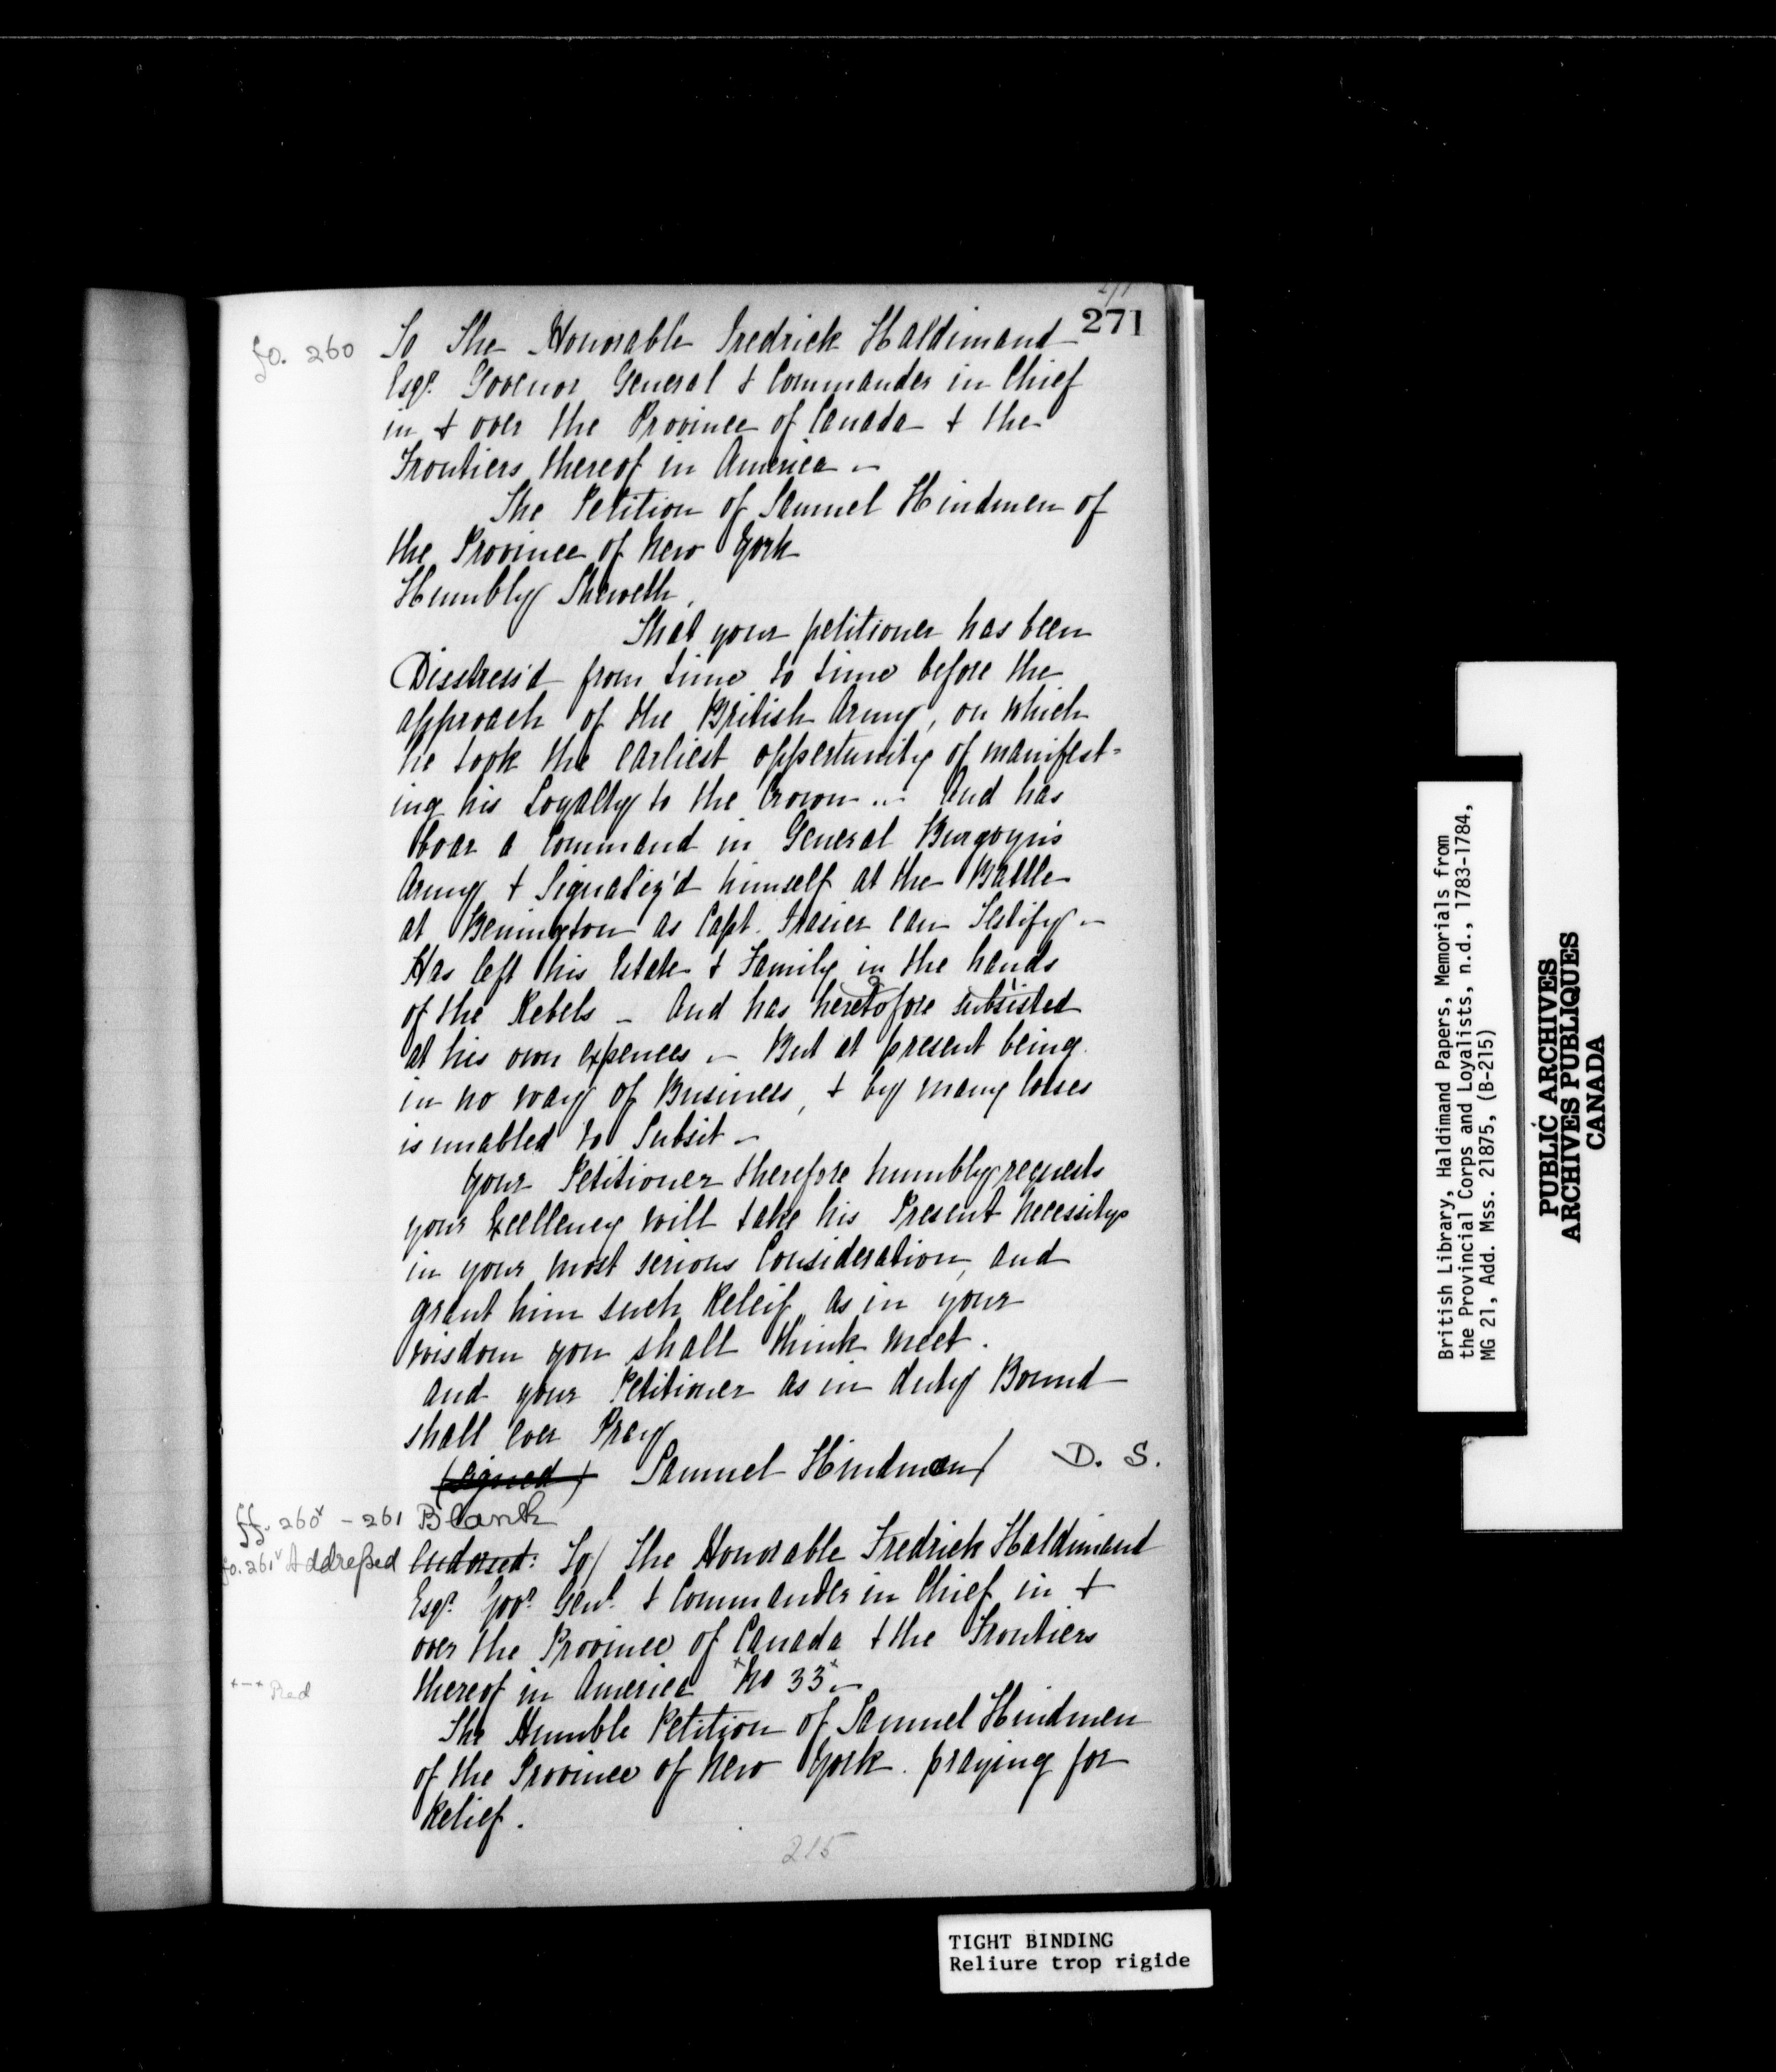 271
fo. 260
To The Honorable Fredrick Haldimand
Esqr. Govenor General & Commander in Chief
in & over the Province of Canada & the
Frontiers thereof in America -
The Petition of Samuel Hindmen of
the Province of New York
Humbly Sheweth,
That your petitioner has been
Disstress'd from time to time before the
approach of the British Army, on which
he took the earliest oppertunity of manifest=
ing his Loyalty to the Crown - And has
boar a Command in General Burgoyn's
Army & Signaliz'd himself at the Battle
at Benington as Capt. Frasier can Testify -
Has left his Estate & Family in the hands
of the Rebels - And has heretofore subsisted
at his own expences - But at present being
in no way of Business, & by many losses
is unabled to Subsit -
Your Petitioner therefore humbly requests
your Excellency will take his Present necessitys
in your most serious Consideration, and
grant him such Releif as in your
wisdom you shall think meet.
And your Petitioner as in duty Bound
shall ever Pray
(signed) Samuel Hindman/ D. S.
ff. 260v - 261 Blank
fo. 261v Addressed Endorsed: To/ The Honorable Fredrick Haldimand
Esqr. Govr. Genl. & Commander in Chief in &
over the Province of Canada & the Frontiers
thereof in America x No 33 x -
x-x Red
The Humble Petition of Samuel Hindmen
of the Province of New York praying for
Relief.
215
British Library, Haldimand Papers, Memorials from
the Provincial Corps and Loyalists, n.d., 1783-1784,
MG 21, Add. Mss. 21875, (B-215)
PUBLIC ARCHIVES
ARCHIVES PUBLIQUES
CANADA
TIGHT BINDING
Reliure trop rigide